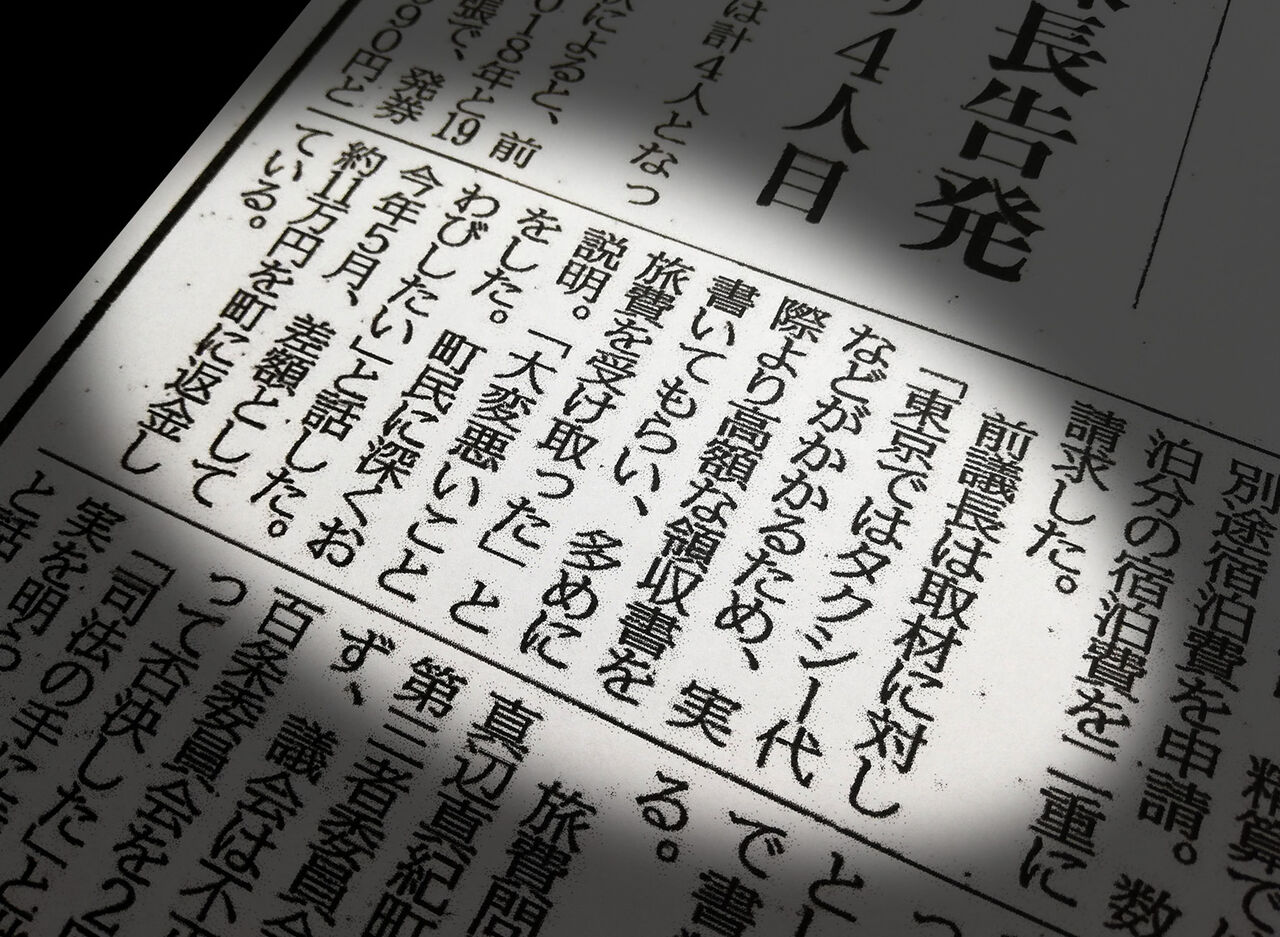 長告発
4人目
は計4人となっ
によると、前
018年と19
張で、発券
90円と
精算で
別途宿泊費を申請。数
泊分の宿泊費を二重に
請求した。
前議長は取材に対し
「東京ではタクシー代
などがかかるため、実
際より高額な領収書を
書いてもらい、多めに
旅費を受け取った」と
説明。「大変悪いこと
をした。町民に深くお
わびしたい」と話した。
今年5月、差額として
約11万円を町に返金し
ている。
と
で書
る。
旅費問
真辺真紀町
第三者委員会
ず、
議会は不
百条委員会を2
って否決した」と
「司法の手
実を明ら
と話